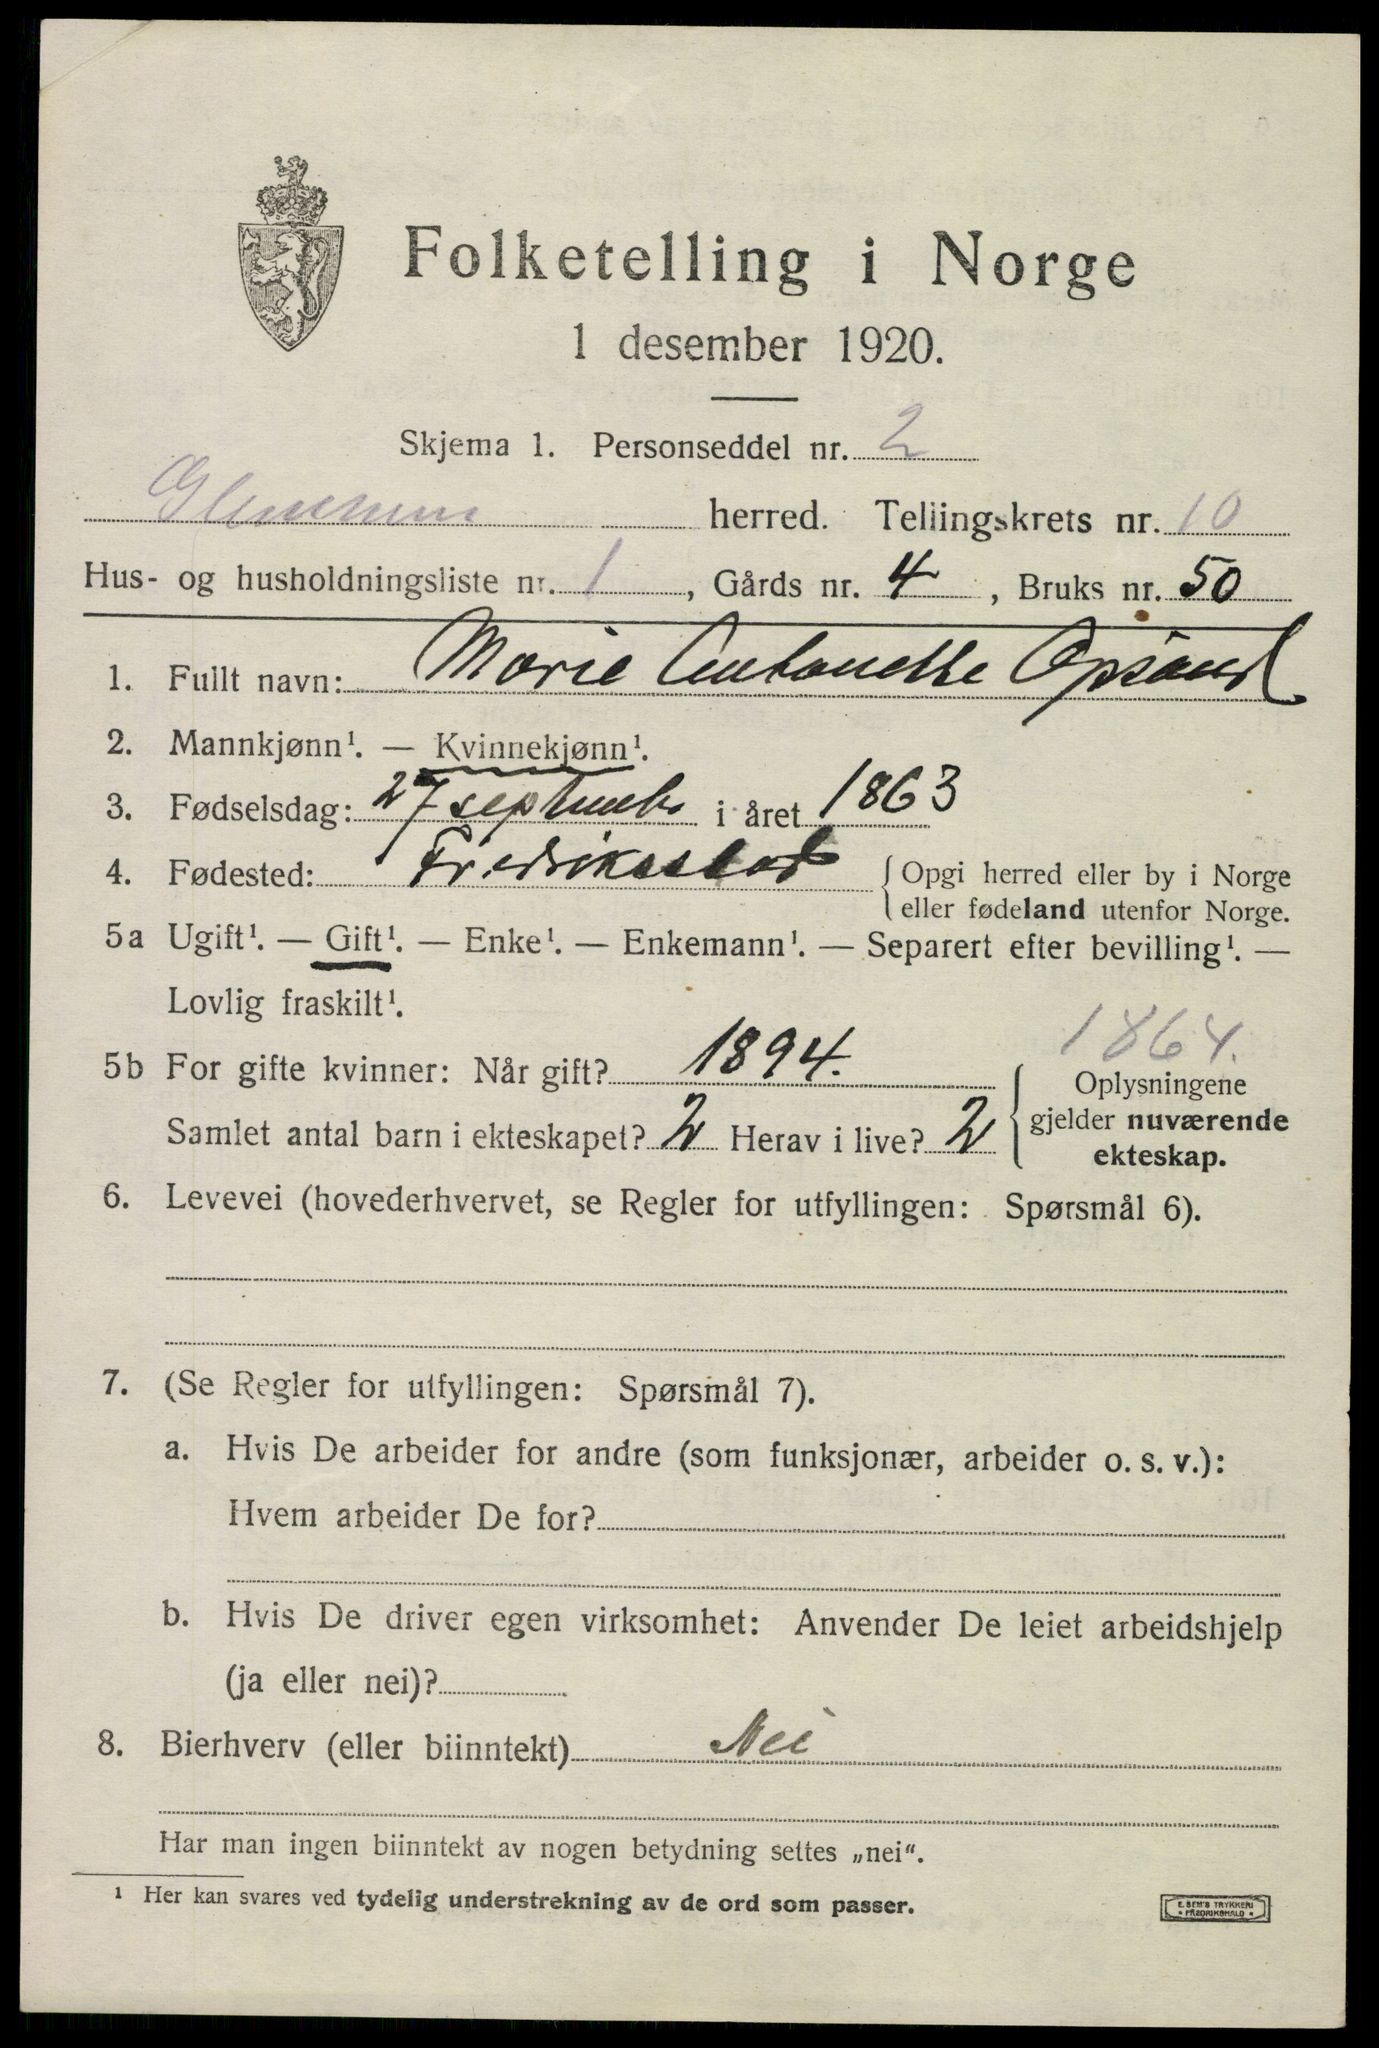 Folketelling i Norge
1 desember 1920.
Skjema 1. Personseddel nr. 2
Glemmen herred. Tellingskrets nr. 10
Hus- og husholdningsliste nr. 1, Gårds nr. 4, Bruks nr. 50
1. Fullt navn: Marie Antonette Opsand
2. Mannkjønn¹. — Kvinnekjønn¹.
3. Fødselsdag: 27 septembr i året 1863
4. Fødested: Fredriksstad { Opgi herred eller by i Norge
eller fødeland utenfor Norge.
5a Ugift¹. — Gift¹. — Enke¹. — Enkemann¹. — Separert efter bevilling¹. —
Lovlig fraskilt¹.
1864.
5b For gifte kvinner: Når gift? 1894. { Oplysningene
gjelder nuværende
Samlet antal barn i ekteskapet? 2 Herav i live? 2
ekteskap.
6. Levevei (hovederhvervet, se Regler for utfyllingen: Spørsmål 6).
7. (Se Regler for utfyllingen: Spørsmål 7).
a. Hvis De arbeider for andre (som funksjonær, arbeider o. s. v.):
Hvem arbeider De for?
b. Hvis De driver egen virksomhet: Anvender De leiet arbeidshjelp
(ja eller nei)?
8. Bierhverv (eller biinntekt) Nei
Har man ingen biinntekt av nogen betydning settes „nei“.
¹ Her kan svares ved tydelig understrekning av de ord som passer.
E. SEM'S TRYKKERI
* FREDRIKSHALD *